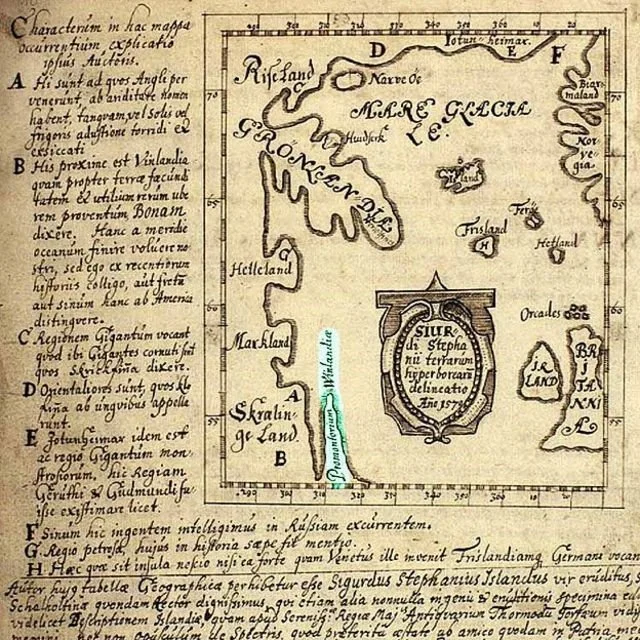 Characterum in hac mappa
occurrentium explicatio
ipsius Auctoris.
A Hi sunt ad qvos Angli per
venerunt, ab ariditate nomen
habent, tanqvam vel Solis vel
frigoris adustione torridi et
exsiccati
B His proxime est Vinlandia
qvam propter terræ fæcundi
tatem et utilium rerum ube
rem proventum Bonam
dixêre. Hanc a meridie
oceanum finire voluere no
stri, sed ego ex recentiorum
historiis colligo, aut fretum
aut sinum hanc ab America
distingvere.
C Regionem Gigantum vocant
qvod ibi Gigantes cornuti sint
qvos Skrickfinna dixêre.
D Orientaliores sunt, qvos Klo
fina ab ungvibus appella
runt.
E Jotunheimar idem est
ac regio Gigantum mon
strosorum, hic Regiam
Geruthi et Gudmundi fu
isse existimare licet.
F Sinum hic ingentem intelligimus in Russiam excurrentem.
G Regio petrosa, hujus in historia sæpe fit mentio.
H Hæc qvæ sit insula nescio nisi ea forte qvam Venetus ille invenit Frislandiamq Germani vocan
Autor hujg tabellæ Geographicæ perhibetur esse Sigurdus Stephanius Islandus vir eruditus,
Schalholtinæ qvondam Rector dignissimus, qvi etiam alia nonnulla ingenii et eruditionis specimina
videlicet Descriptionem Islandiæ qvam apud Sereniss: Regiæ Maj: Antiqvarium Thormodu Torfæum
non opusculum de Spectris, qvod præterita æstate ab amico qvodam in Patria
D
Iotun-heimar.
E
F
Riseland
C
Narve Oe
Biar
maland
MARE GLACIA
LE.
GRONLANDIA
Huidserk
Nor
ve
gia
Island
Ferø
Frisland
H
Hetland
G
Helleland
Orcades
Markland
SIUR
di Stepha
nii terrarum
hyperborearū
delineatio
Año 1570
IR
LAND
BRI
TAN
NI
A
A
Skralin
ge Land.
B
Promontorium Winlandiæ
70
65
60
55
70
65
60
55